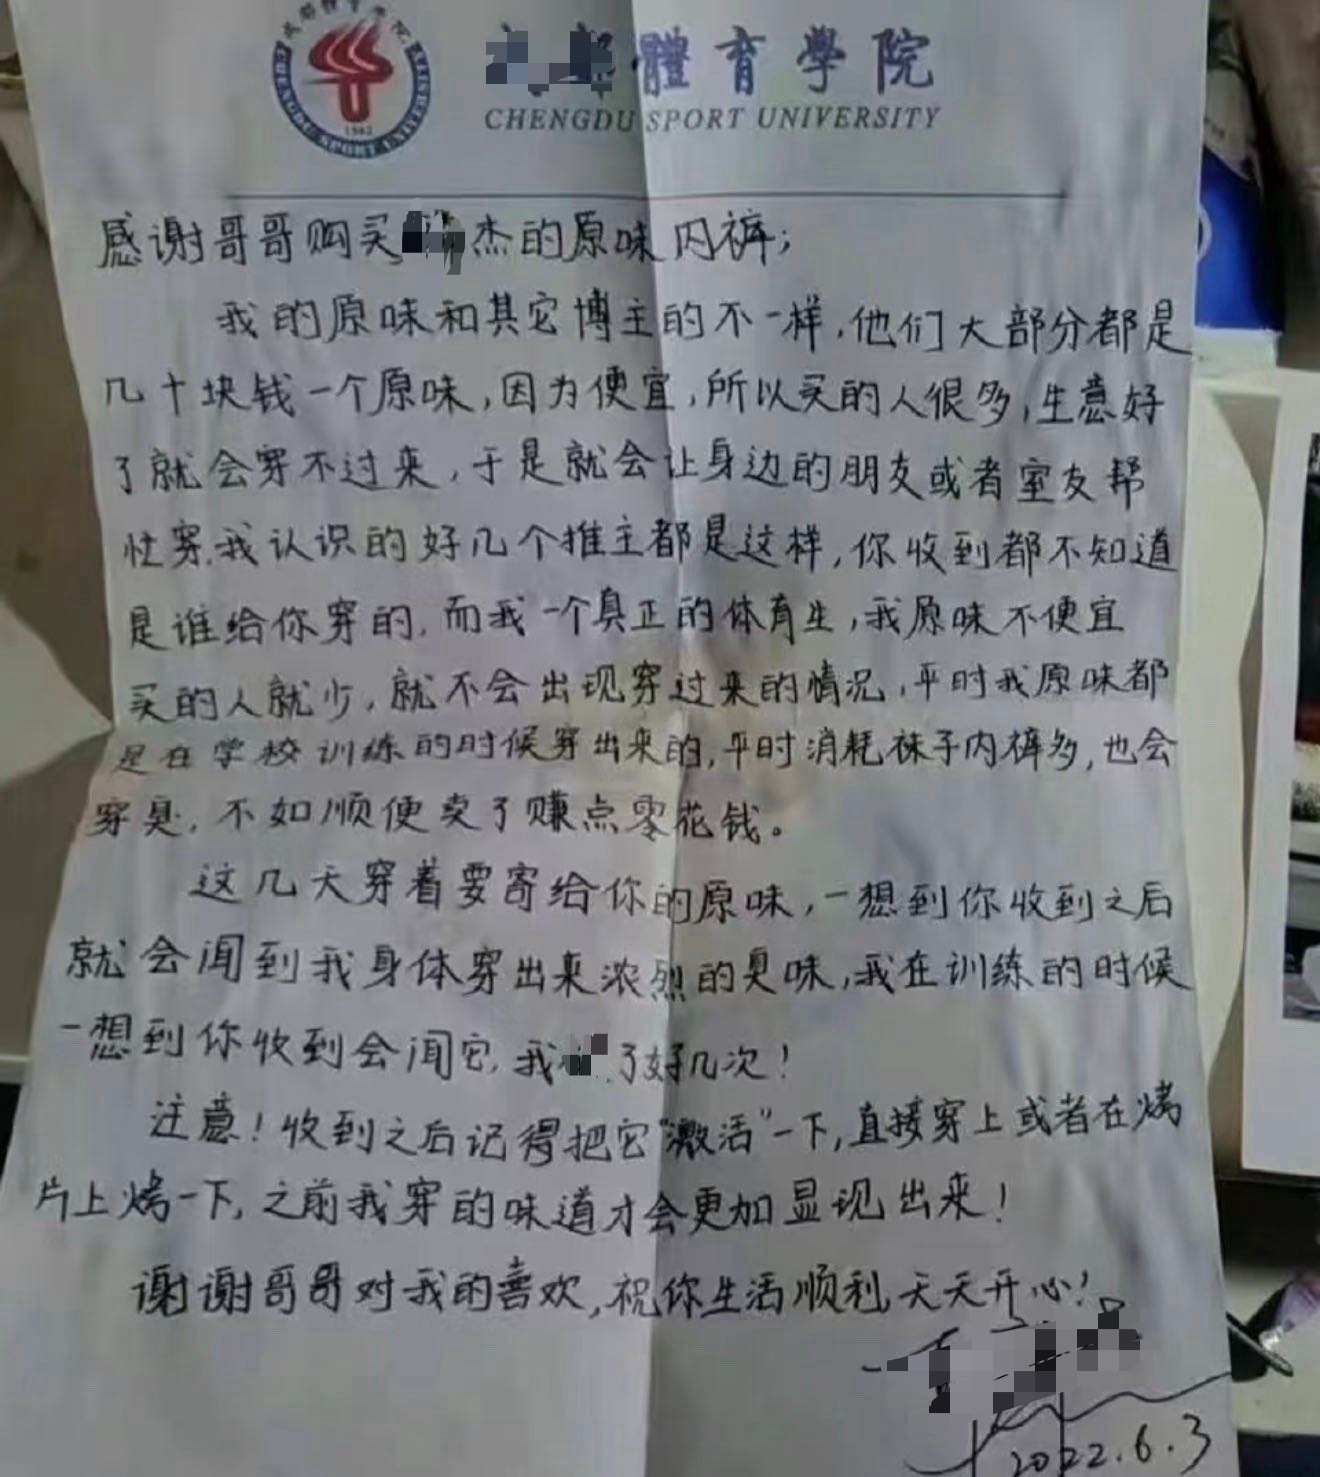 成都体育学院
CHENGDU SPORT UNIVERSITY
1942
體育學院
CHENGDU SPORT UNIVERSITY
感谢哥哥购买 杰的原味内裤;
我的原味和其它博主的不一样,他们大部分都是
几十块钱一个原味,因为便宜,所以买的人很多,生意好
了就会穿不过来,于是就会让身边的朋友或者室友帮
忙穿.我认识的好几个推主都是这样,你收到都不知道
是谁给你穿的.而我一个真正的体育生,我原味不便宜
买的人就少,就不会出现穿过来的情况,平时我原味都
是在学校训练的时候穿出来的,平时消耗袜子内裤多,也会
穿臭,不如顺便卖了赚点零花钱。
这几天穿着要寄给你的原味,一想到你收到之后
就会闻到我身体穿出来浓烈的臭味,我在训练的时候
一想到你收到会闻它,我 了好几次!
注意!收到之后记得把它"激活"一下,直接穿上或者在烤
片上烤一下,之前我穿的味道才会更加显现出来!
谢谢哥哥对我的喜欢,祝你生活顺利天天开心!
2022.6.3